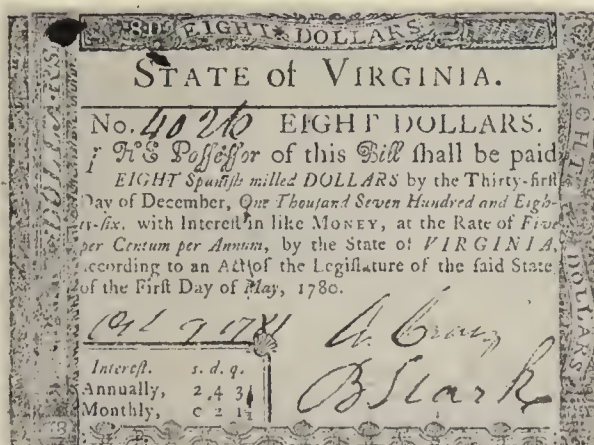 EIGHT DOLLARS
STATE of VIRGINIA.
No. 4026 EIGHT DOLLARS.
THE Poſſeſſor of this Bill ſhall be paid
EIGHT Spaniſh milled DOLLARS by the Thirty-firſt
Day of December, One Thouſand Seven Hundred and Eigh-
ty-ſix, with Intereſt in like MONEY, at the Rate of Five
per Centum per Annum, by the State of VIRGINIA,
according to an Act of the Legiſlature of the ſaid State
of the Firſt Day of May, 1780.
Oct 9 1781 A. Craig
B Stark
Intereſt. s. d. q.
Annually, 2 4 3
Monthly, 0 2 1
DOLLARS
EIGHT DOLLARS